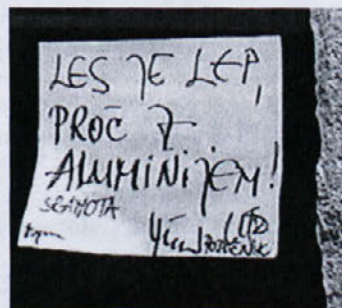 LES JE LEP,
PROČ Z
ALUMINIJEM!
SRAMOTA